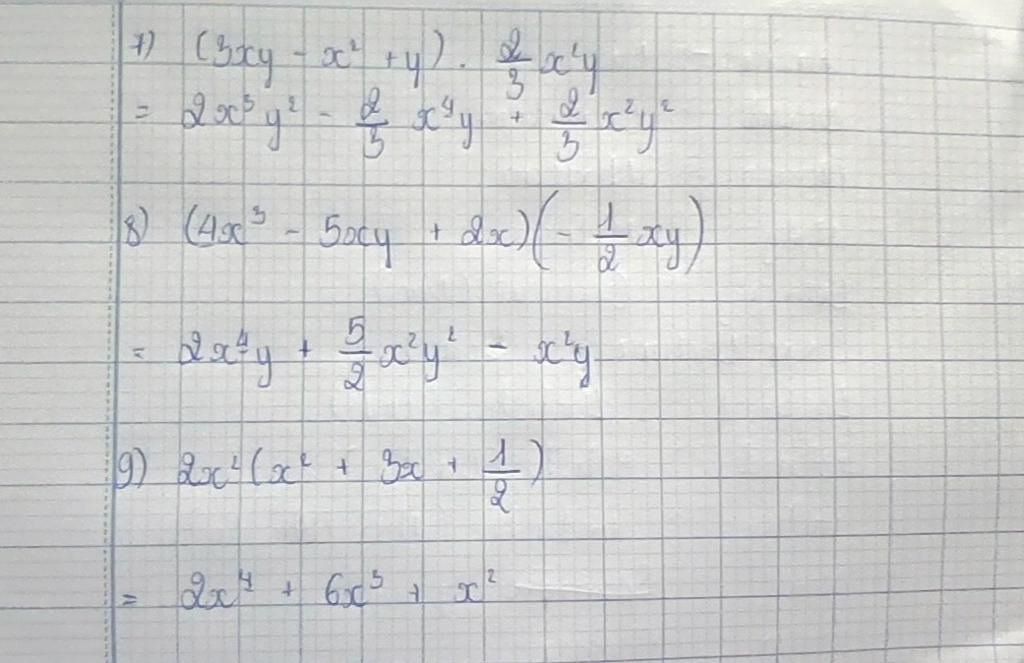 7) (3xy - x² + y) . 2/3 x²y
= 2x³y² - 2/3 x⁴y + 2/3 x²y²
8) (4x³ - 5xy + 2x)(- 1/2 xy)
= 2x⁴y + 5/2 x²y² - x²y
9) 2x²(x² + 3x + 1/2)
= 2x⁴ + 6x³ + x²